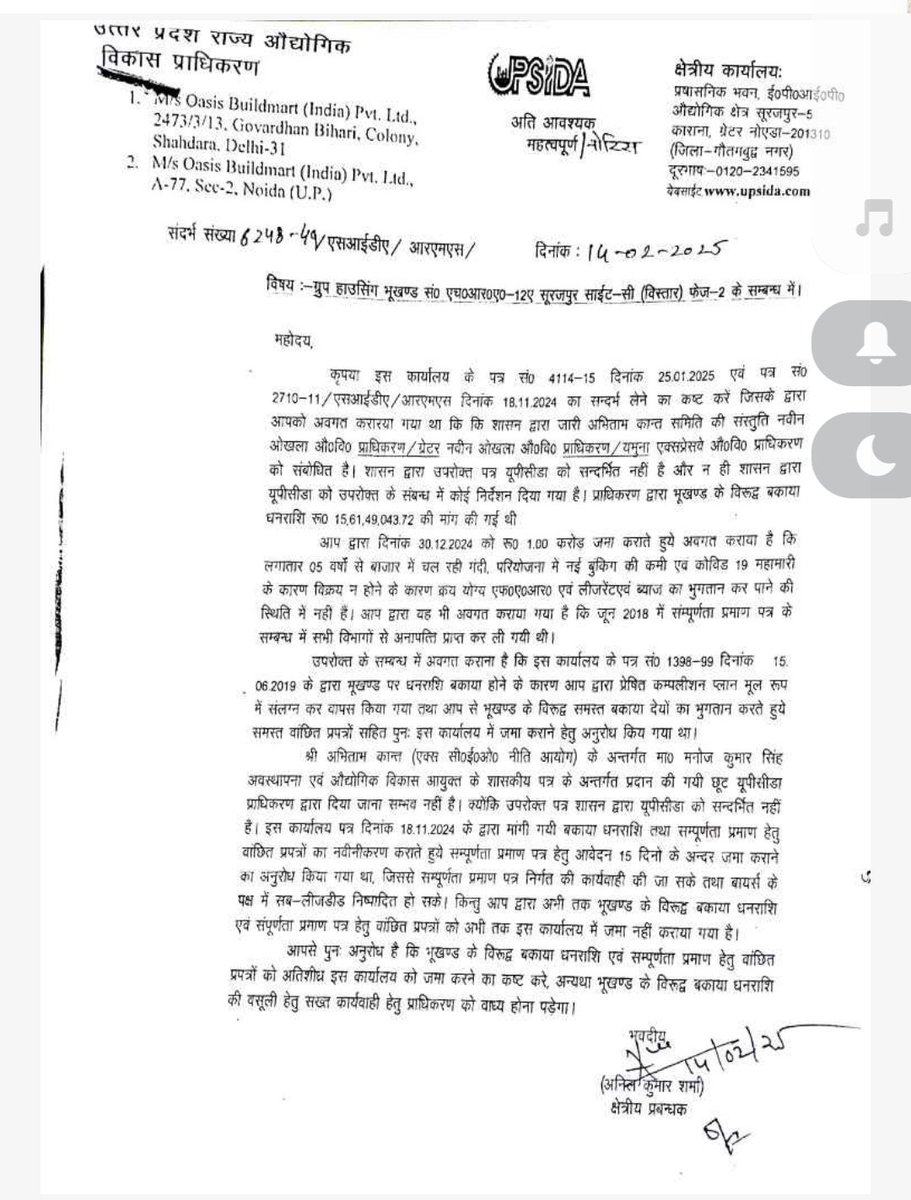 उत्तर प्रदेश राज्य औद्योगिक
विकास प्राधिकरण
1. M/s Oasis Buildmart (India) Pvt. Ltd.,
2473/3/13, Govardhan Bihari, Colony,
Shahdara, Delhi-31
2. M/s Oasis Buildmart (India) Pvt. Ltd.,
A-77, Sec-2, Noida (U.P.)
UPSIDA
अति आवश्यक
महत्वपूर्ण/नोटिस
क्षेत्रीय कार्यालयः
प्रषासनिक भवन, ई०पी०आई०पी०
औद्योगिक क्षेत्र सूरजपुर-5
काराना, ग्रेटर नोएडा-201310
(जिला-गौतमबुद्ध नगर)
दूरभाष-0120-2341595
वेबसाईट www.upsida.com
संदर्भ संख्या 6248-49/एसआईडीए/ आरएमएस/
दिनांक : 14-02-2025
विषय :-ग्रुप हाउसिंग भूखण्ड सं० एच०आर०ए०-12ए सूरजपुर साईट-सी (विस्तार) फेज-2 के सम्बन्ध में।
महोदय,
कृपया इस कार्यालय के पत्र सं० 4114-15 दिनांक 25.01.2025 एवं पत्र सं०
2710-11/एसआईडीए/आरएमएस दिनांक 18.11.2024 का सन्दर्भ लेने का कष्ट करें जिसके द्वारा
आपको अवगत करारया गया था कि कि शासन द्वारा जारी अभिताम कान्त समिति की संस्तुति नवीन
ओखला औ०वि० प्राधिकरण/ग्रेटर नवीन ओखला औ०वि० प्राधिकरण/यमुना एक्सप्रेसवे औ०वि० प्राधिकरण
को संबोधित है। शासन द्वारा उपरोक्त पत्र यूपीसीडा को सन्दर्भित नहीं है और न ही शासन द्वारा
यूपीसीडा को उपरोक्त के संबन्ध में कोई निर्देशन दिया गया है। प्राधिकरण द्वारा भूखण्ड के विरूद्व बकाया
धनराशि रू० 15,61,49,043.72 की मांग की गई थी
आप द्वारा दिनांक 30.12.2024 को रू० 1.00 करोड जमा कराते हुये अवगत कराया है कि
लगातार 05 वर्षो से बाजार में चल रही गंदी, परियोजना में नई बुकिंग की कमी एवं कोविड 19 महामारी
के कारण विक्रय न होने के कारण क्रय योग्य एफ०ए०आर० एवं लीजरेंटएवं ब्याज का भुगतान कर पाने की
स्थिति में नही हैं। आप द्वारा यह भी अवगत कराया गया है कि जून 2018 में संम्पूर्णता प्रमाण पत्र के
सम्बन्ध में सभी विभागों से अनापत्ति प्राप्त कर ली गयी थी।
उपरोक्त के सम्बन्ध में अवगत कराना है कि इस कार्यालय के पत्र सं० 1398-99 दिनांक 15.
06.2019 के द्वारा भूखण्ड पर धनराशि बकाया होने के कारण आप द्वारा प्रेषित कम्पलीशन प्लान मूल रूप
में संलग्न कर वापस किया गया तथा आप से भूखण्ड के विरूद्व समस्त बकाया देयों का भुगतान करते हुये
समस्त वांछित प्रपत्रों सहित पुनः इस कार्यालय में जमा कराने हेतु अनुरोध किय गया था।
श्री अभिताम कान्त (एक्स सी०ई०ओ० नीति आयोग) के अन्तर्गत मा० मनोज कुमार सिंह
अवस्थापना एवं औद्योगिक विकास आयुक्त के शासकीय पत्र के अन्तर्गत प्रदान की गयी छूट यूपीसीडा
प्राधिकरण द्वारा दिया जाना सम्भव नहीं है। क्योंकि उपरोक्त पत्र शासन द्वारा यूपीसीडा को सन्दर्भित नहीं
है। इस कार्यालय पत्र दिनांक 18.11.2024 के द्वारा मांगी गयी बकाया धनराशि तथा सम्पूर्णता प्रमाण हेतु
वांछित प्रपत्रों का नवीनीकरण कराते हुये सम्पूर्णता प्रमाण पत्र हेतु आवेदन 15 दिनो के अन्दर जमा कराने
का अनुरोध किया गया था, जिससे सम्पूर्णता प्रमाण पत्र निर्गत की कार्यवाही की जा सके तथा बायर्स के
पक्ष में सब-लीजडीड निष्पादित हो सके। किन्तु आप द्वारा अभी तक भूखण्ड के विरूद्व बकाया धनराशि
एवं संपूर्णता प्रमाण पत्र हेतु वांछित प्रपत्रों को अभी तक इस कार्यालय में जमा नहीं कराया गया है।
आपसे पुनः अनुरोध है कि भूखण्ड के विरूद्व बकाया धनराशि एवं सम्पूर्णता प्रमाण हेतु वांछित
प्रपत्रों को अतिशीध्र इस कार्यालय को जमा करने का कष्ट करे, अन्यथा भूखण्ड के विरूद्व बकाया धनराशि
की वसूली हेतु सख्त कार्यवाही हेतु प्राधिकरण को वाध्य होना पड़ेगा।
भवदीय
14/02/25
(अनिल कुमार शर्मा)
क्षेत्रीय प्रबन्धक